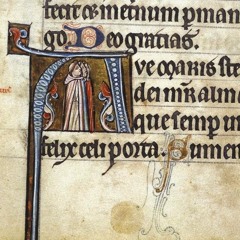 fecit or͛ inet̄num p̄man
go. Deo gratias.
Ave maris ste
dei mr̄ alma
que semp̄ u
felix celi porta. Sumen